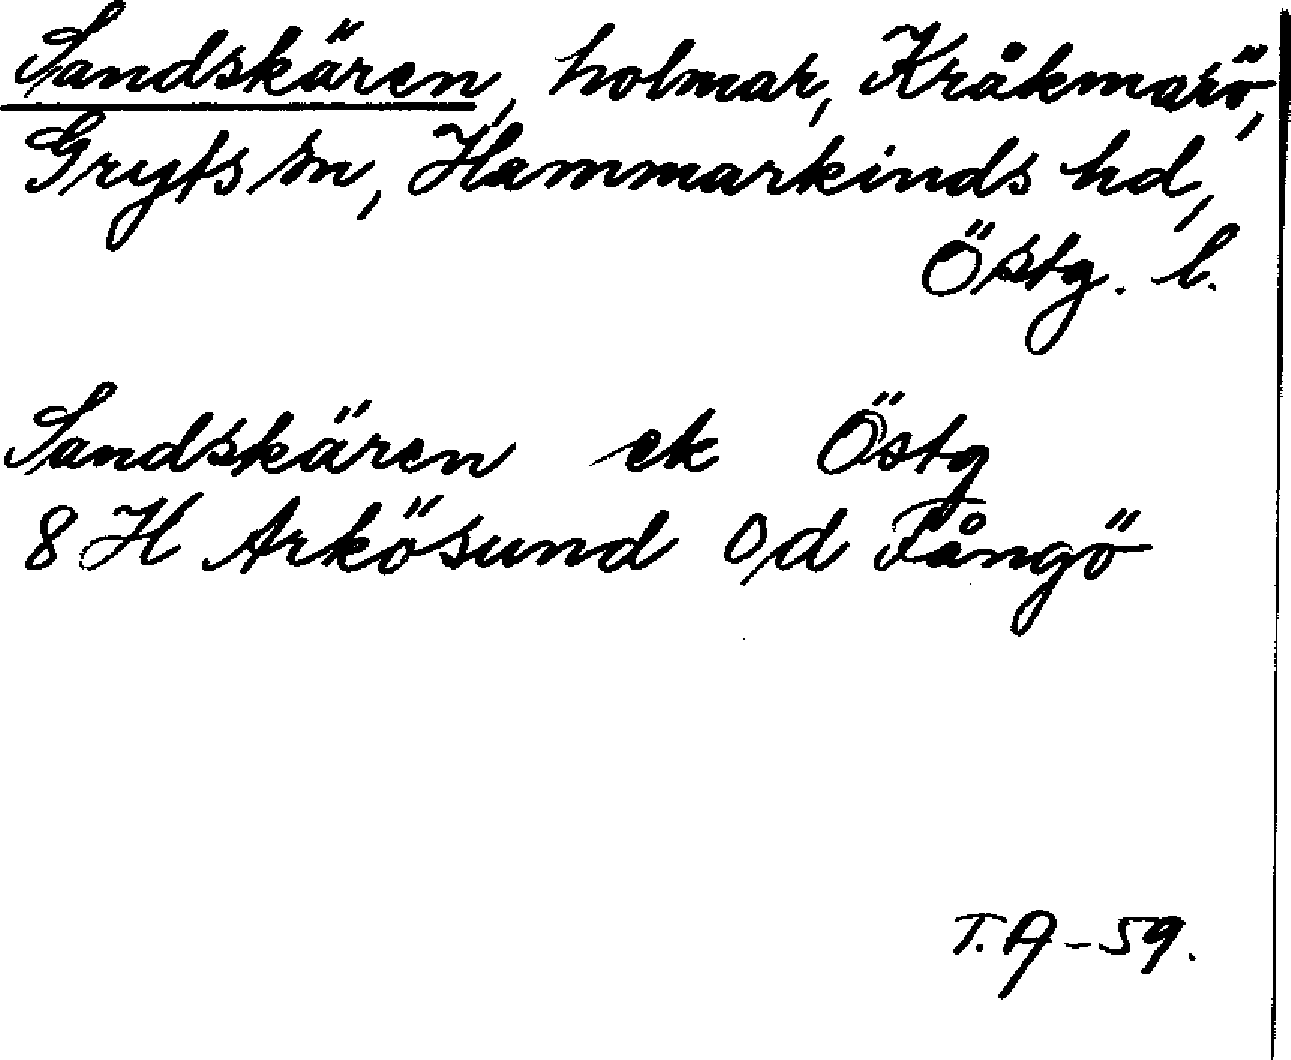 Sandskären, holmar, Kråkmarö,
Gryts sn, Hammarkinds hd,
Östg. l.
Sandskären ek Östg
8 H Arkösund 0/d Fångö
T.A-59.